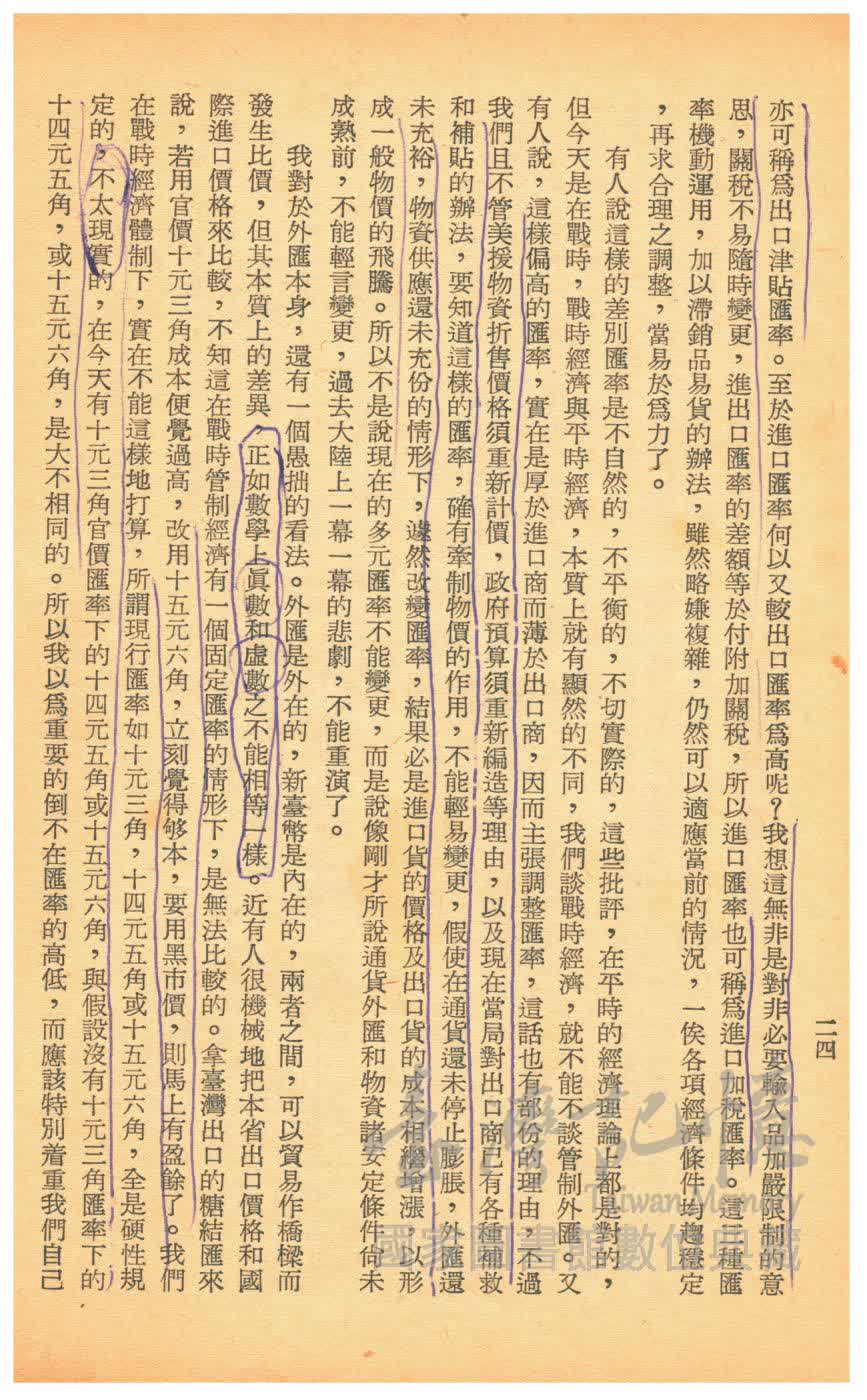 二四
亦可稱爲出口津貼匯率。至於進口匯率何以又較出口匯率爲高呢？我想這無非是對非必要輸入品加嚴限制的意
思，關稅不易隨時變更，進出口匯率的差額等於付附加關稅，所以進口匯率也可稱爲進口加稅匯率。這三種匯
率機動運用，加以滯銷品易貨的辦法，雖然略嫌複雜，仍然可以適應當前的情況，一俟各項經濟條件均趨穩定
，再求合理之調整，當易於爲力了。
有人說這樣的差別匯率是不自然的，不平衡的，不切實際的，這些批評，在平時的經濟理論上都是對的，
但今天是在戰時，戰時經濟與平時經濟，本質上就有顯然的不同，我們談戰時經濟，就不能不談管制外匯。又
有人說，這樣偏高的匯率，實在是厚於進口商而薄於出口商，因而主張調整匯率，這話也有部份的理由，不過
我們且不管美援物資折售價格須重新計價，政府預算須重新編造等理由，以及現在當局對出口商已有各種補救
和補貼的辦法，要知道這樣的匯率，確有牽制物價的作用，不能輕易變更，假使在通貨還未停止膨脹，外匯還
未充裕，物資供應還未充份的情形下，遽然改變匯率，結果必是進口貨的價格及出口貨的成本相繼增漲，以形
成一般物價的飛騰。所以不是說現在的多元匯率不能變更，而是說像剛才所說通貨外匯和物資諸安定條件尚未
成熟前，不能輕言變更，過去大陸上一幕一幕的悲劇，不能重演了。
我對於外匯本身，還有一個愚拙的看法。外匯是外在的，新臺幣是內在的，兩者之間，可以貿易作橋樑而
發生比價，但其本質上的差異，正如數學上眞數和虛數之不能相等一樣。近有人很機械地把本省出口價格和國
際進口價格來比較，不知這在戰時管制經濟有一個固定匯率的情形下，是無法比較的。拿臺灣出口的糖結匯來
說，若用官價十元三角成本便覺過高，改用十五元六角，立刻覺得够本，要用黑市價，則馬上有盈餘了。我們
在戰時經濟體制下，實在不能這樣地打算，所謂現行匯率如十元三角，十四元五角或十五元六角，全是硬性規
定的，不太現實的，在今天有十元三角官價匯率下的十四元五角或十五元六角，與假設沒有十元三角匯率下的
十四元五角，或十五元六角，是大不相同的。所以我以爲重要的倒不在匯率的高低，而應該特別着重我們自己
臺灣記憶
Taiwan Memory
國家圖書館數位典藏